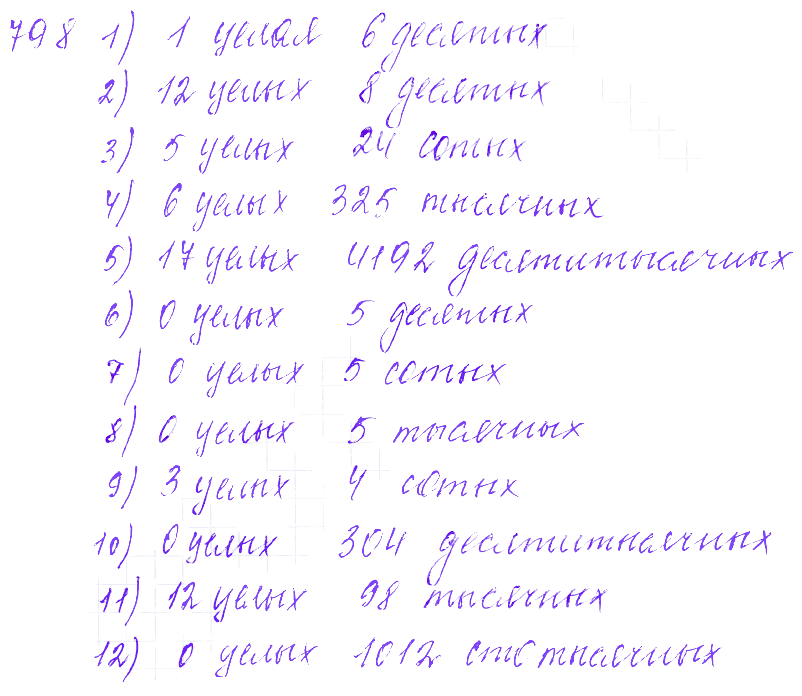 798 1) 1 целая 6 десятых
2) 12 целых 8 десятых
3) 5 целых 24 сотых
4) 6 целых 325 тысячных
5) 17 целых 4192 десятитысячных
6) 0 целых 5 десятых
7) 0 целых 5 сотых
8) 0 целых 5 тысячных
9) 3 целых 4 сотых
10) 0 целых 304 десятитысячных
11) 12 целых 98 тысячных
12) 0 целых 1012 стотысячных